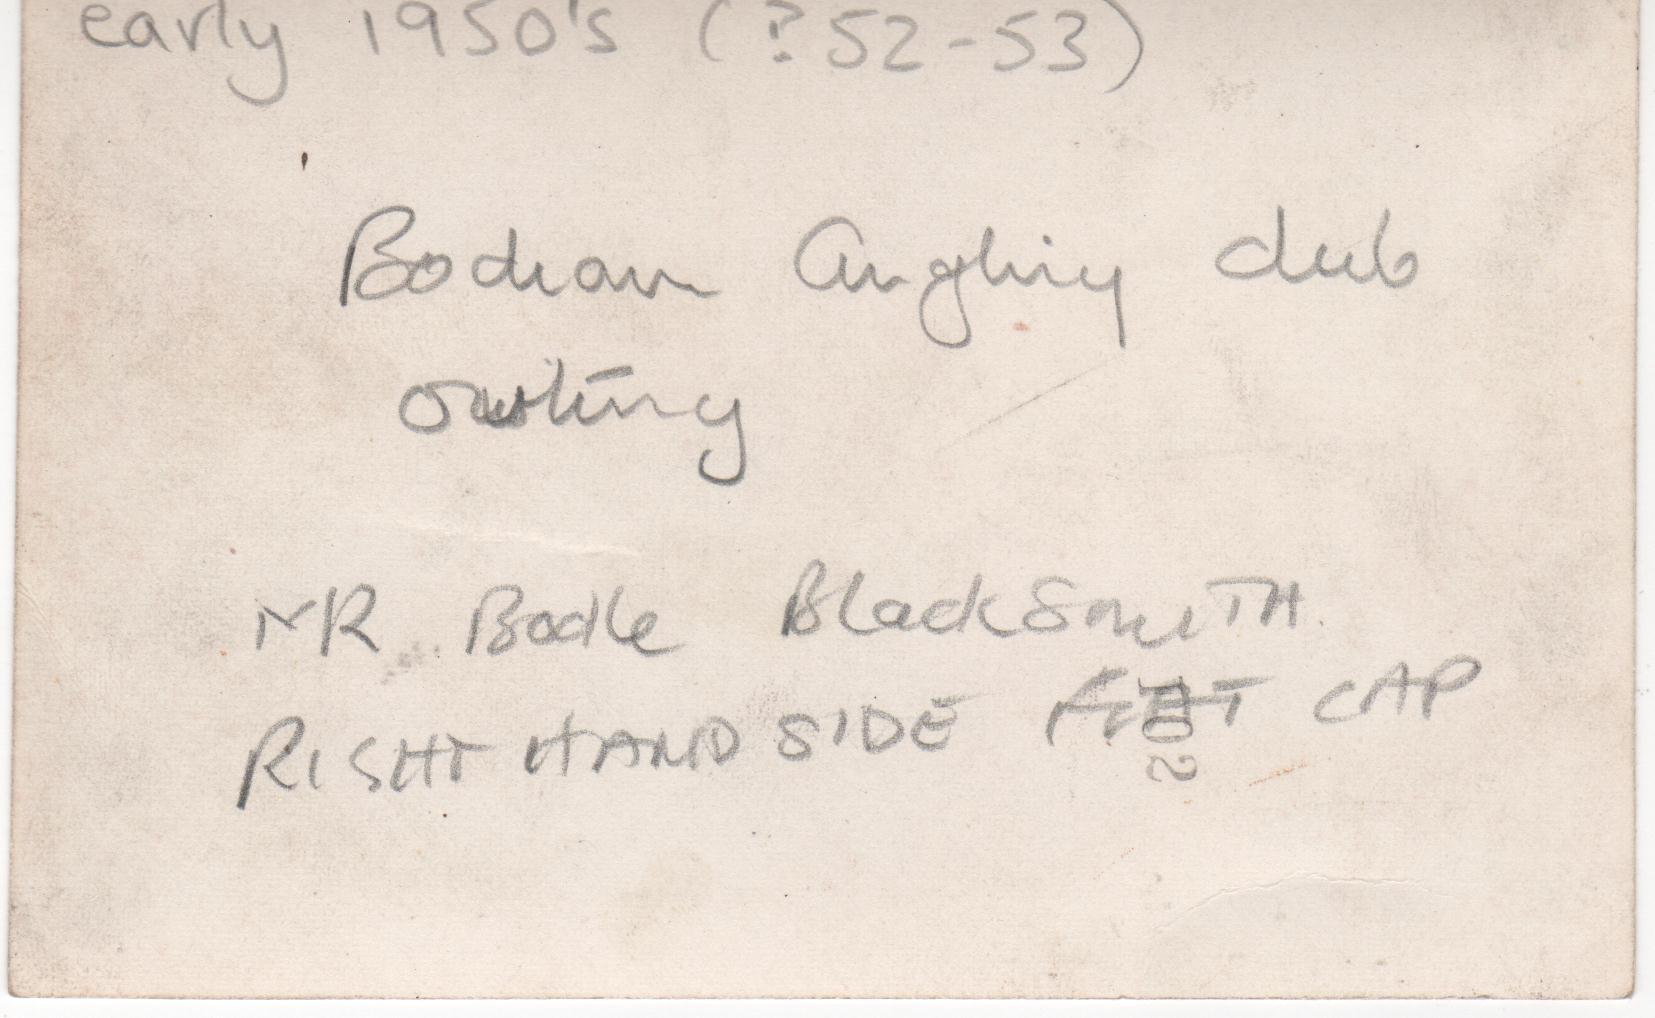 early 1950's (? 52-53)
Bodiam Angling club
outing
MR Bodle BlackSmITH.
RIGHT HAND SIDE FLAT CAP